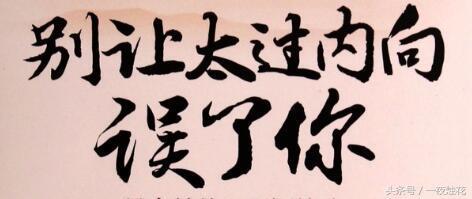 别让太过内向
误了你
头条号 / 一夜灿花